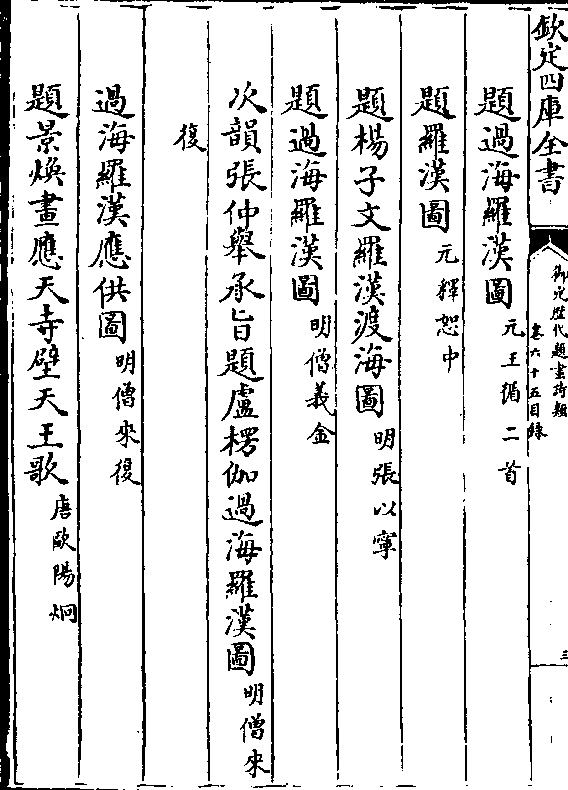 欽定四庫全書
御定歴代題畫詩類
卷六十五目錄
三
題過海羅漢圖 元王循二首
題羅漢圖 元釋恕中
題楊子文羅漢渡海圖 明張以寧
題過海羅漢圖 明僧義金
次韻張仲舉承旨題盧楞伽過海羅漢圖 明僧來
復
過海羅漢應供圖 明僧來復
題景煥畫應天寺壁天王歌 唐歐陽炯